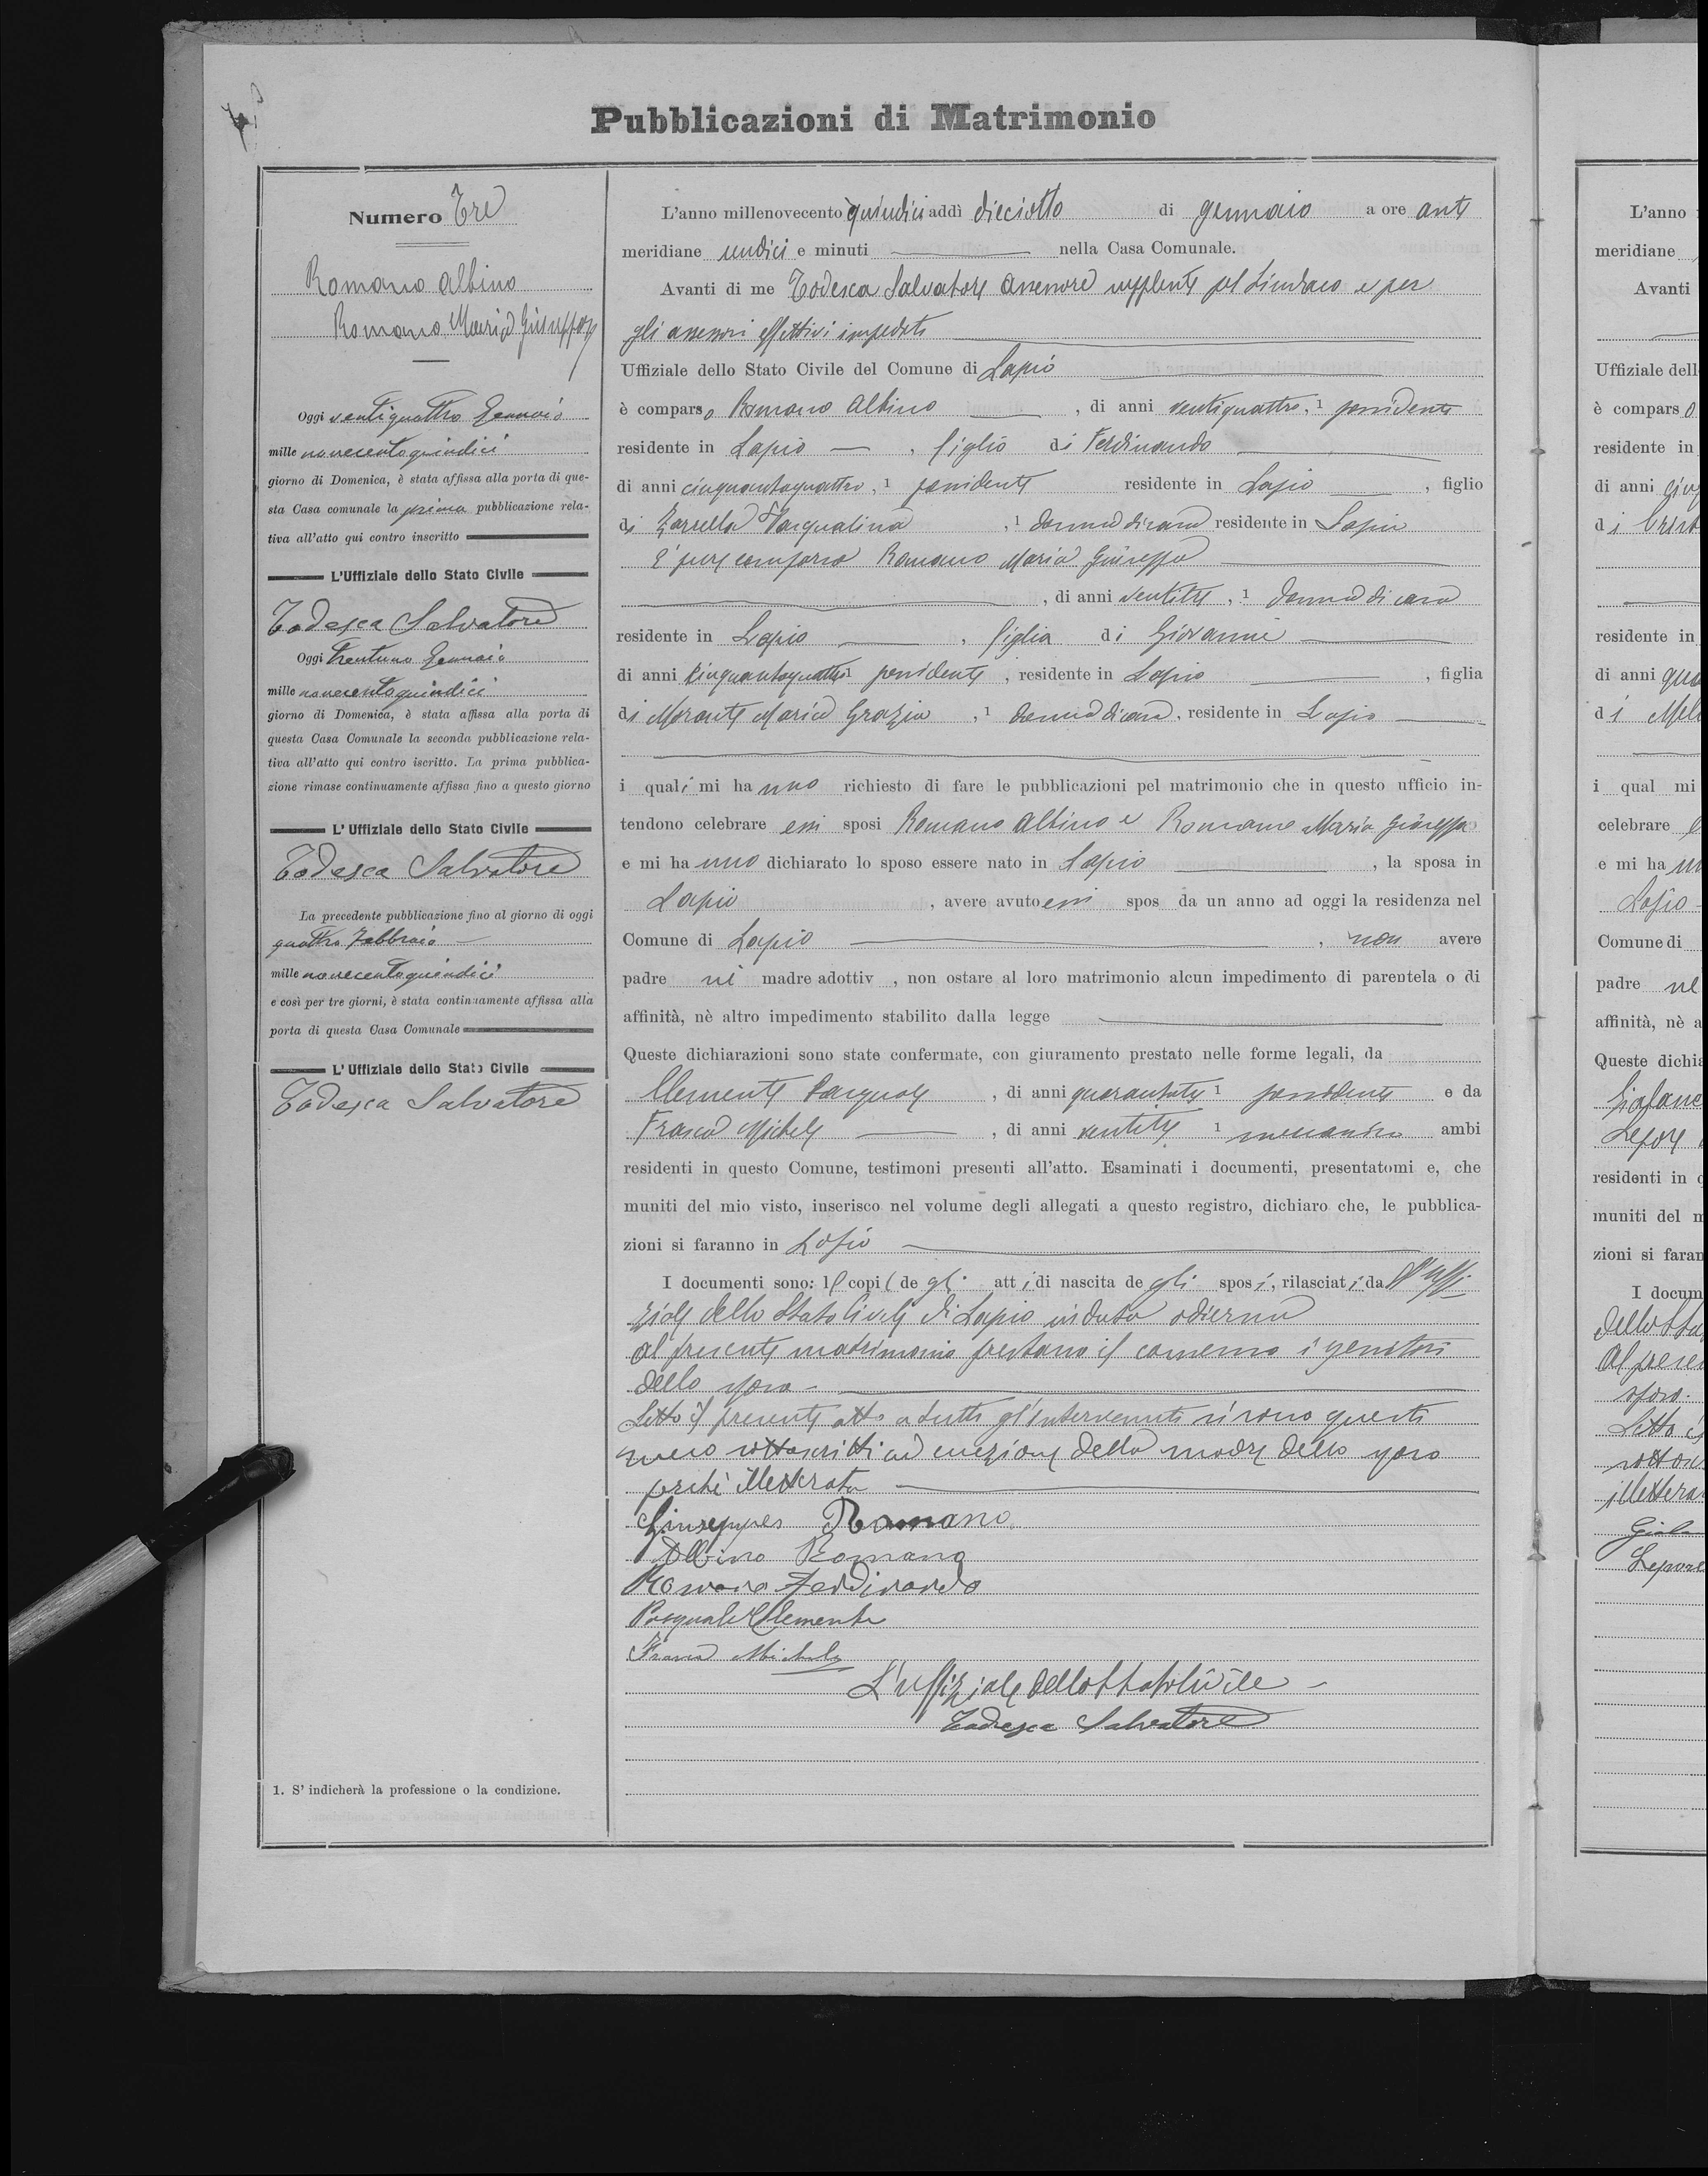 Pubblicazioni di Matrimonio
Numero Tre
Romano Albino
Romano Maria Giuseppa
Oggi ventiquattro Gennaio
mille novecentoquindici
giorno di Domenica, è stata affissa alla porta di que-
sta Casa comunale la prima pubblicazione rela-
tiva all'atto qui contro inscritto
L'Uffiziale dello Stato Civile
Todesca Salvatore
Oggi trentuno Gennaio
mille novecentoquindici
giorno di Domenica, è stata affissa alla porta di
questa Casa Comunale la seconda pubblicazione rela-
tiva all'atto qui contro iscritto. La prima pubblica-
zione rimase continuamente affissa fino a questo giorno
L'Uffiziale dello Stato Civile
Todesca Salvatore
La precedente pubblicazione fino al giorno di oggi
quattro Febbraio
mille novecentoquindici
e così per tre giorni, è stata continuamente affissa alla
porta di questa Casa Comunale
L'Uffiziale dello Stato Civile
Todesca Salvatore
1. S' indicherà la professione o la condizione.
L'anno millenovecento quindici addì dieciotto di gennaio a ore anti
meridiane undici e minuti nella Casa Comunale.
Avanti di me Todesca Salvatore Assessore supplente pel Sindaco e per
gli assessori effettivi impediti
Uffiziale dello Stato Civile del Comune di Lapio
è comparso Romano Albino , di anni ventiquattro, 1 possidente
residente in Lapio , figlio di Ferdinando
di anni cinquantaquattro, 1 possidente residente in Lapio , figlio
di Zarrella Pasqualina , 1 donna di casa residente in Lapio
È pure comparsa Romano Maria Giuseppa
, di anni ventitre, 1 donna di casa
residente in Lapio , figlia di Giovanni
di anni cinquantaquattro 1 possidente, residente in Lapio , figlia
di Morante Maria Grazia , 1 donna di casa, residente in Lapio
i quali mi hanno richiesto di fare le pubblicazioni pel matrimonio che in questo ufficio in-
tendono celebrare essi sposi Romano Albino e Romano Maria Giuseppa
e mi hanno dichiarato lo sposo essere nato in Lapio , la sposa in
Lapio , avere avuto essi spos da un anno ad oggi la residenza nel
Comune di Lapio , non avere
padre nè madre adottiv , non ostare al loro matrimonio alcun impedimento di parentela o di
affinità, nè altro impedimento stabilito dalla legge
Queste dichiarazioni sono state confermate, con giuramento prestato nelle forme legali, da
Clemente Pasquale , di anni quarantatre 1 possidente e da
Frasca Michele , di anni ventitre 1 meccanico ambi
residenti in questo Comune, testimoni presenti all'atto. Esaminati i documenti, presentatomi e, che
muniti del mio visto, inserisco nel volume degli allegati a questo registro, dichiaro che, le pubblica-
zioni si faranno in Lapio
I documenti sono: le copie de gli atti di nascita de gli sposi, rilasciati da l'uffi
ziale dello Stato Civile di Lapio in data odierna
Al presente matrimonio prestano il consenso i genitori
dello sposo -
Letto il presente atto a tutti gl'intervenuti si sono questi
meco sottoscritti ad eccezione della madre dello sposo
perchè illetterata
Giuseppa Romano
Albino Romano
Romano Ferdinando
Pasquale Clemente
Frasca Michele
L'uffiziale dello Stato Civile
Todesca Salvatore
L'anno
meridiane
Avanti
Uffiziale dell
è compars o
residente in
di anni
di
residente in
di anni
di
i qual mi
celebrare
e mi ha
Lapio
Comune di
padre nè
affinità, nè a
Queste dichia
Lepore
residenti in q
muniti del m
zioni si faran
I docum
dello Sta
Al presen
sposo.
Letto il
illettera
Lepore